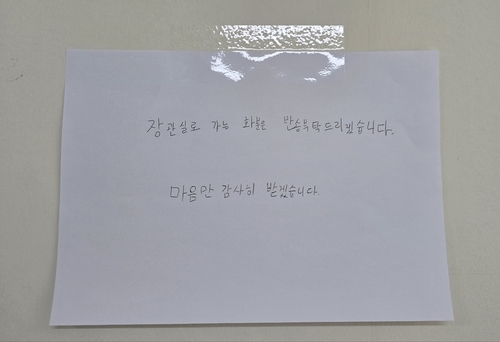 장관실로 가능 화분은 반송부탁드리겠습니다.
마음만 감사히 받겠습니다.